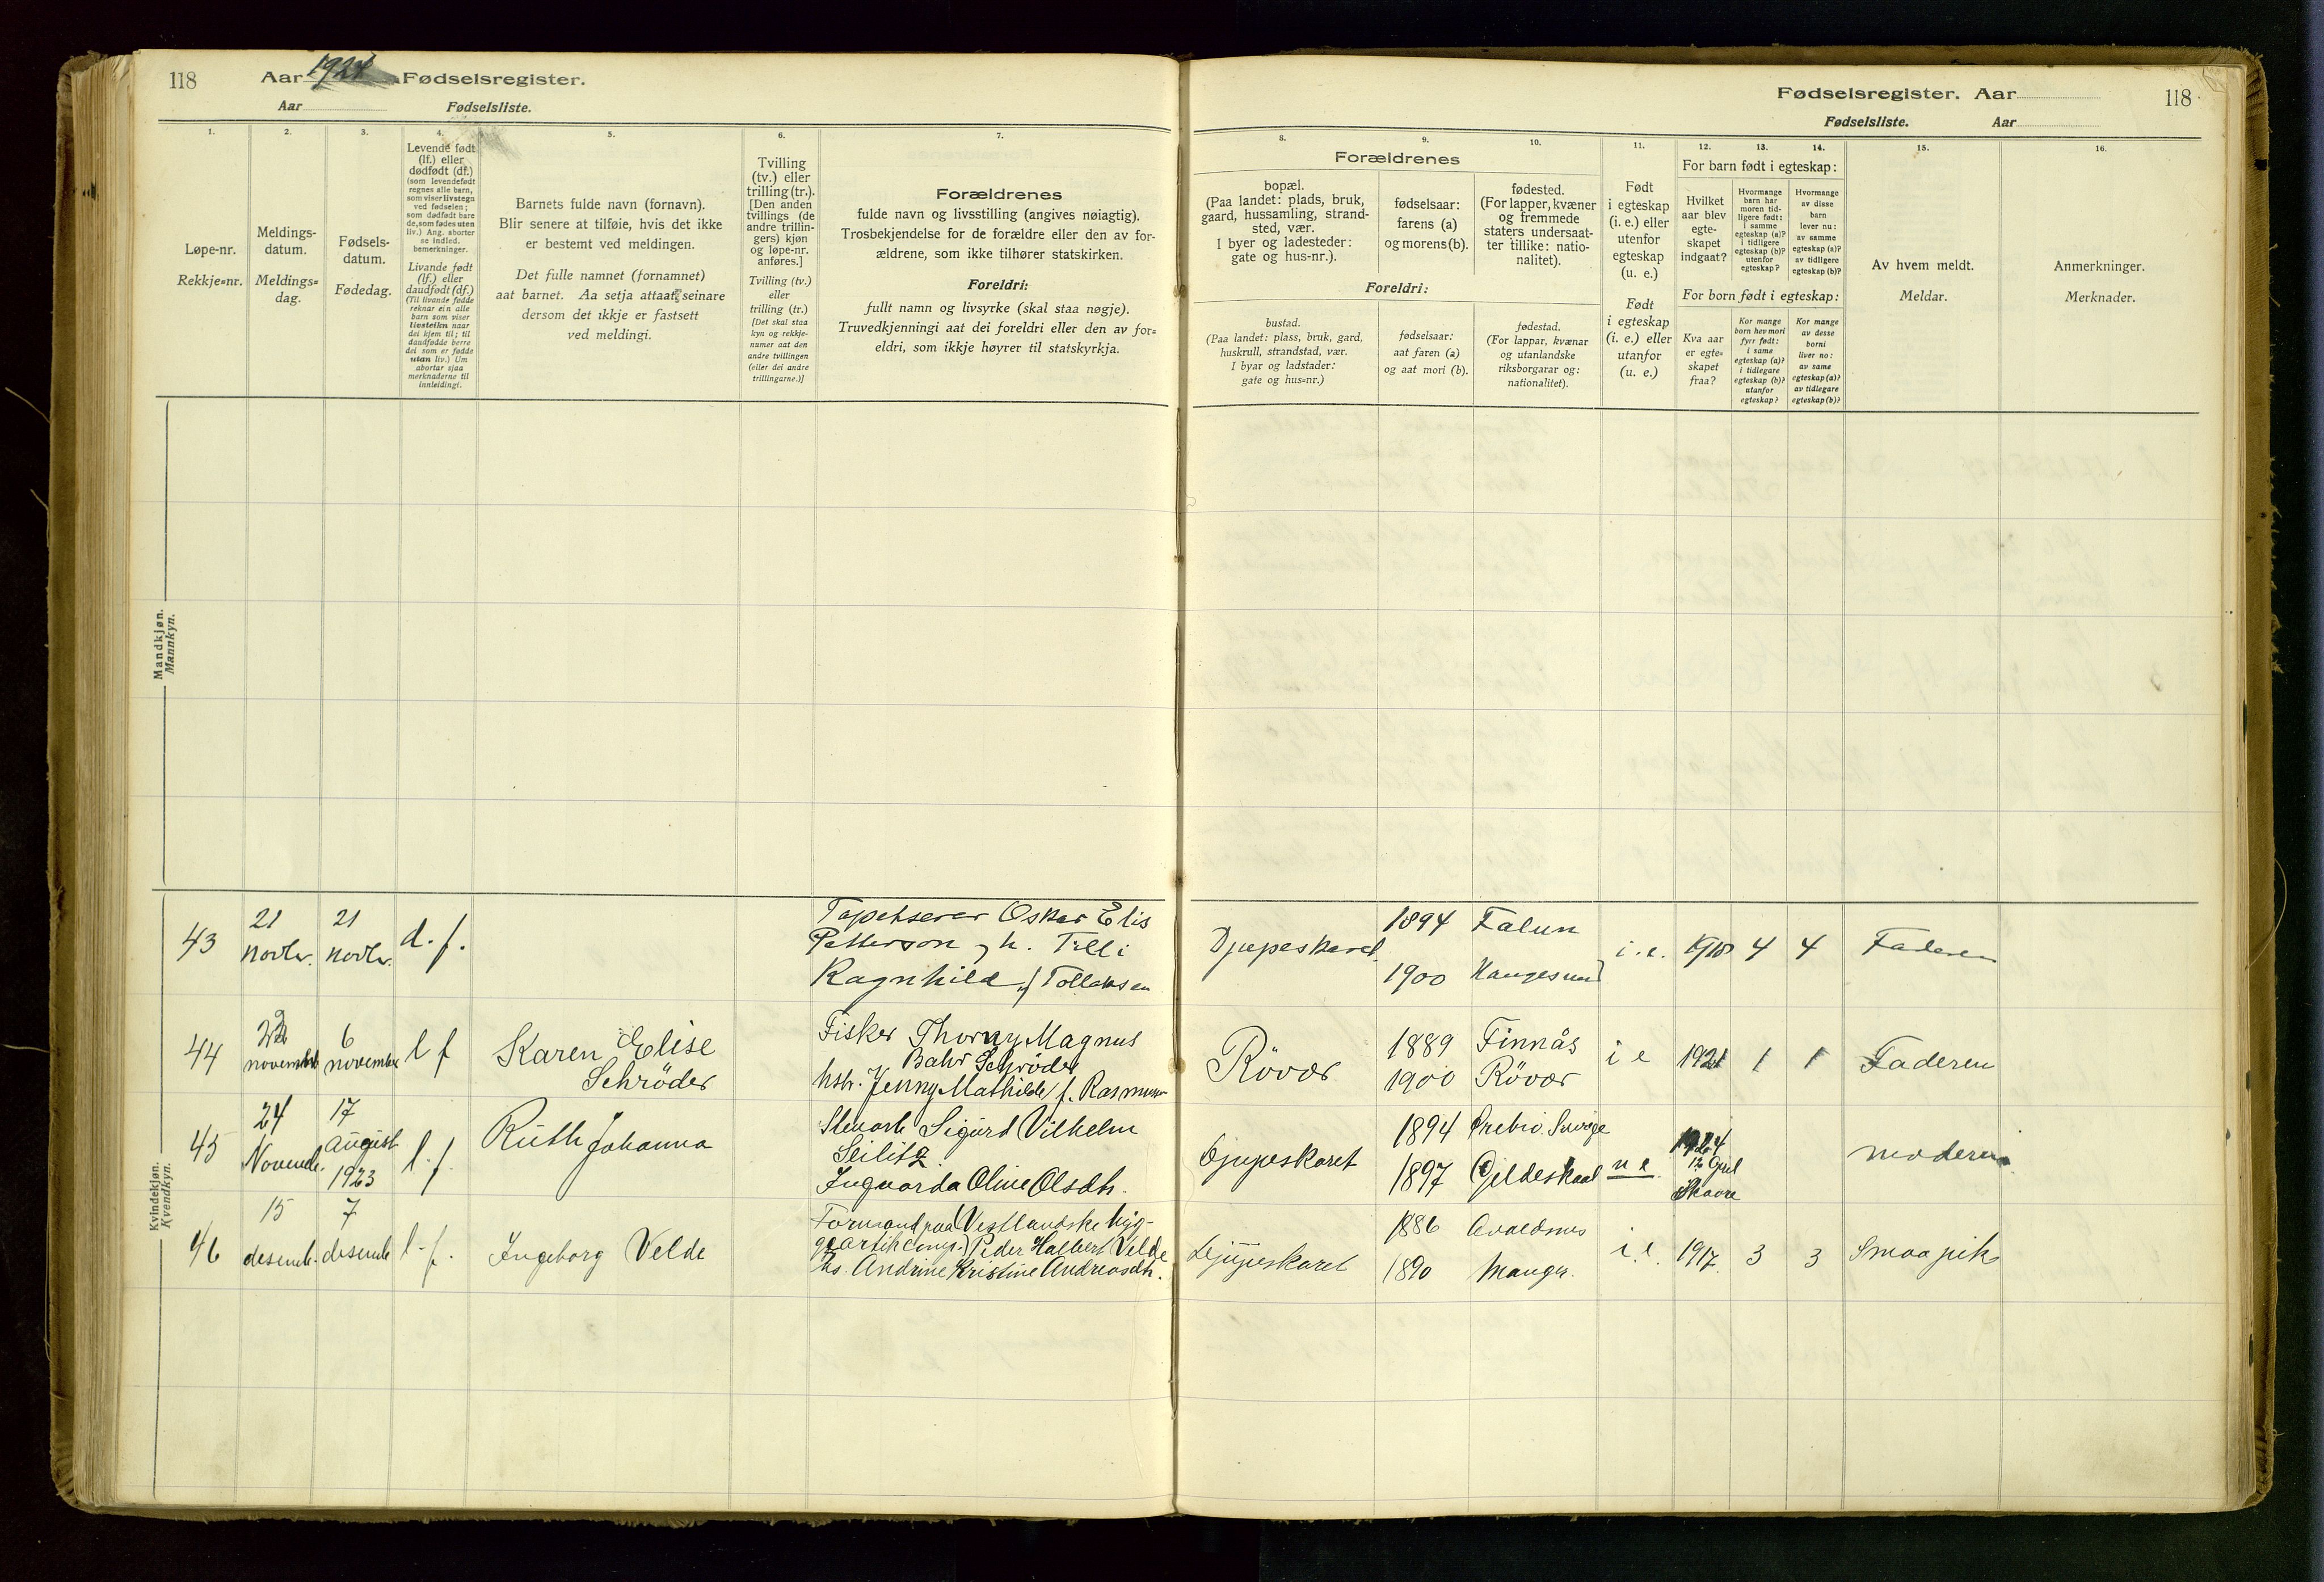 118
Aar 1924 Fødselsregister.
Aar
Fødselsliste.
Fødselsregister. Aar
118
Fødselsliste.
Aar
1.
Løpe-nr.
Rekkje=nr.
2.
Meldings-
datum.
Meldings=
dag.
3.
Fødsels-
datum.
Fødedag.
4.
Levende født
(lf.) eller
dødfødt (df.)
(som levendefødt
regnes alle barn,
som viser livstegn
ved fødselen;
som dødfødt bare
de, som fødes uten
liv.) Ang. aborter
se indled.
bemerkninger.
Livande født
(lf.) eller
daudfødt (df.)
(Til livande fødde
reknar ein alle
barn som viser
livsteikn naar
dei kjem til; til
daudfødde berre
dei som er fødde
utan liv.) Um
abortar sjaa
merknaderne til
innleidingi.
5.
Barnets fulde navn (fornavn).
Blir senere at tilføie, hvis det ikke
er bestemt ved meldingen.
Det fulle namnet (fornamnet)
aat barnet. Aa setja attaat seinare
dersom det ikkje er fastsett
ved meldingi.
6.
Tvilling
(tv.) eller
trilling (tr.).
[Den anden
tvillings (de
andre trillin-
gers) kjøn
og løpe-nr.
anføres.]
Tvilling (tv.)
eller
trilling (tr.)
[Det skal staa
kyn og rekkje-
numer aat den
andre tvillingen
(eller dei andre
trillingarne.)]
7.
Forældrenes
fulde navn og livsstilling (angives nøiagtig).
Trosbekjendelse for de forældre eller den av for-
ældrene, som ikke tilhører statskirken.
Foreldri:
fullt namn og livsyrke (skal staa nøgje).
Truvedkjenningi aat dei foreldri eller den av for=
eldri, som ikkje høyrer til statskyrkja.
8.
9.
10.
Forældrenes
bopæl.
(Paa landet: plads, bruk,
gaard, hussamling, strand-
sted, vær.
I byer og ladesteder:
gate og hus-nr.).
fødselsaar:
farens (a)
og morens (b).
fødested.
(For lapper, kvæner
og fremmede
staters undersaat-
ter tillike: natio-
nalitet).
Foreldri:
bustad.
(Paa landet: plass, bruk, gard,
huskrull, strandstad, vær.
I byar og ladstader:
gate og hus=nr.)
fødselsaar:
aat faren (a)
og aat mori (b).
fødestad.
(For lappar, kvænar
og utanlandske
riksborgarar og:
nationalitet).
11.
Født
i egteskap
(i. e.) eller
utenfor
egteskap
(u. e.)
Født
i egteskap
(i. e.) eller
utanfor
(u. e.)
12.
13.
14.
For barn født i egteskap:
Hvilket
aar blev
egte-
skapet
indgaat?
Hvormange
barn har
moren tid-
ligere født:
i samme
egteskap (a)?
i tidligere
egteskap (b)?
utenfor
egteskap?
Hvormange
av disse
barn
lever nu:
av samme
egteskap (a)?
av tidligere
egteskap (b)?
For born født i egteskap:
Kva aar
er egte=
skapet
fraa?
Kor mange
born hev mori
fyrr født:
i same
egteskap (a)?
i tidlegare
egteskap (b)?
utanfor
egteskap?
Kor mange
av desse
borni
liver no:
av same
egteskap (a)?
av tidlegare
egteskap (b)?
15.
Av hvem meldt.
Meldar.
16.
Anmerkninger.
Merknader.
Mandkjøn.
Mannkyn.
Kvindekjøn.
Kvendkyn.
43
21
novbr.
21
novbr.
d. f.
Tapetserer Oskar Elis
Petterson og h. Tilli
Ragnhild f. Tollaksen
Djupeskaret
1894
1900
Falun
Haugesund
i. e.
1918
4
4
Faderen
44
november
6
november
l f
Karen Elise
Schröder
Fisker Thorny Magnus
Bahr Schröder
hstr. Jenny Mathilde f. Rasmussen
Rövær
1889
1900
Finnås
Rövær
i e
1921
1
1
Faderen
45
24
Novemb.
17
August
1923
l. f.
Ruth Johanna
Stuart Sigurd Vilhelm
Seilitz.
Ingvarda Oline Olsdtr.
Djupeskaret
1894
1897
Örebro. Sverige
Gjeldeskaal
u e
1924
12 April
Skaare
moderen
46
15
desemb.
7
desemb
l. f.
Ingeborg Velde
Formand paa (Vestlandske
Peder Halbert Velde
hs. Andrine Kristine Andreasdtr.
Djupeskaret
1886
1890
Avaldsnes
Manger.
i. e.
1917.
3
3